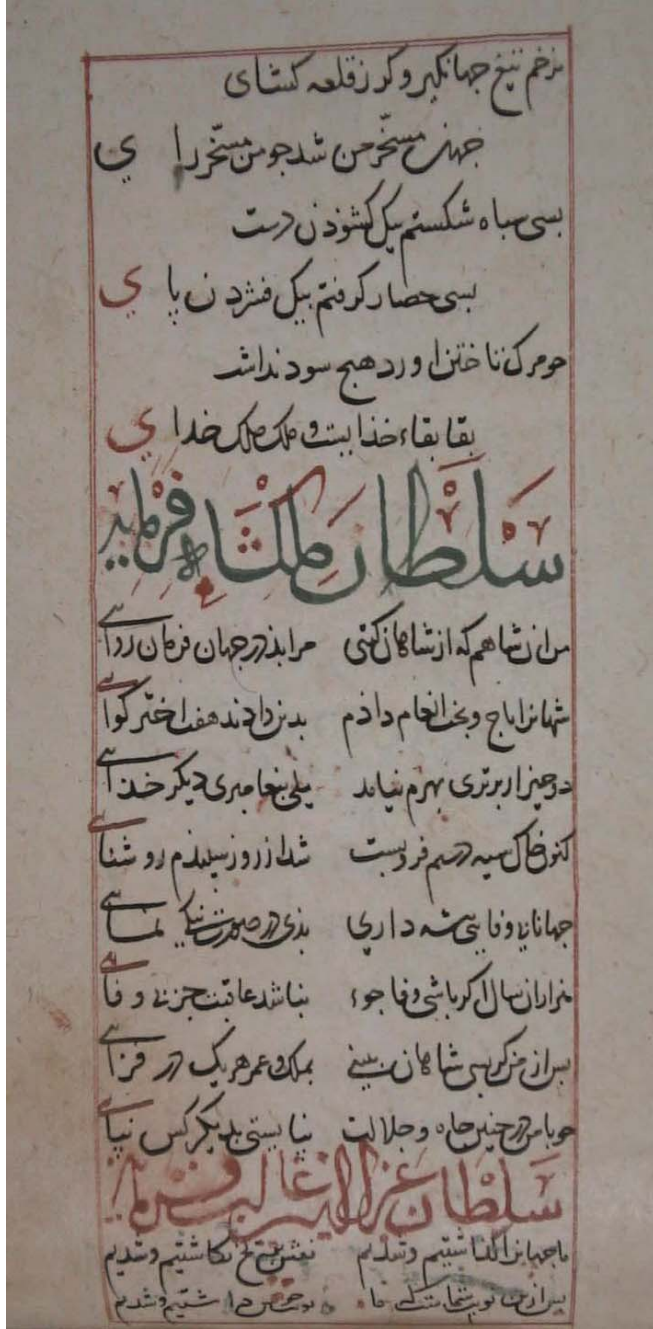 بزخم تیغ جهانکیر و کرز قلعه کشای
جهان مسخّر من شد جو من مسخّر رای
بسی سباه شکستم بیک کشوذن دست
بسی حصار کرفتم بیک فشردن پای
جو مرک تاختن اورد هیج سود نداشت
بقا بقاء خذایست و ملک ملک خدای
سلطان ملکشاه فرماید
من ان شاهم که از شاهان کیتی مرا بذ در جهان فرمان روائی
شهانرا تاج و تخت انعام داذم بدین دادند هفت اختر کوائی
دو جیز از برتری بهرم نیامد یکی بیغامبری دیکر خدائی
کنون خاک سیه در سم فرو بست شد از روز سپیذم روشنائی
جهانا بی وفایی بیشه داری بذی در صورت نیکی نمائی
هزاران سال اکر باشی وفا جوء نباشد عاقبت جز بی وفائی
بس از من کر بسی شاهان ببینی بملک و عمر هر یک در فزائی
جو با من در جنین جاه و جلالت نبایستی بدیکر کس نپائی
سلطان غزالدین غالب فرماید
ما جهانرا کذاشتیم و شدیم نقش فتح نکاشتیم و شدیم
بس از من نوبت شماست شما نوبت خویش داشتیم و شدیم